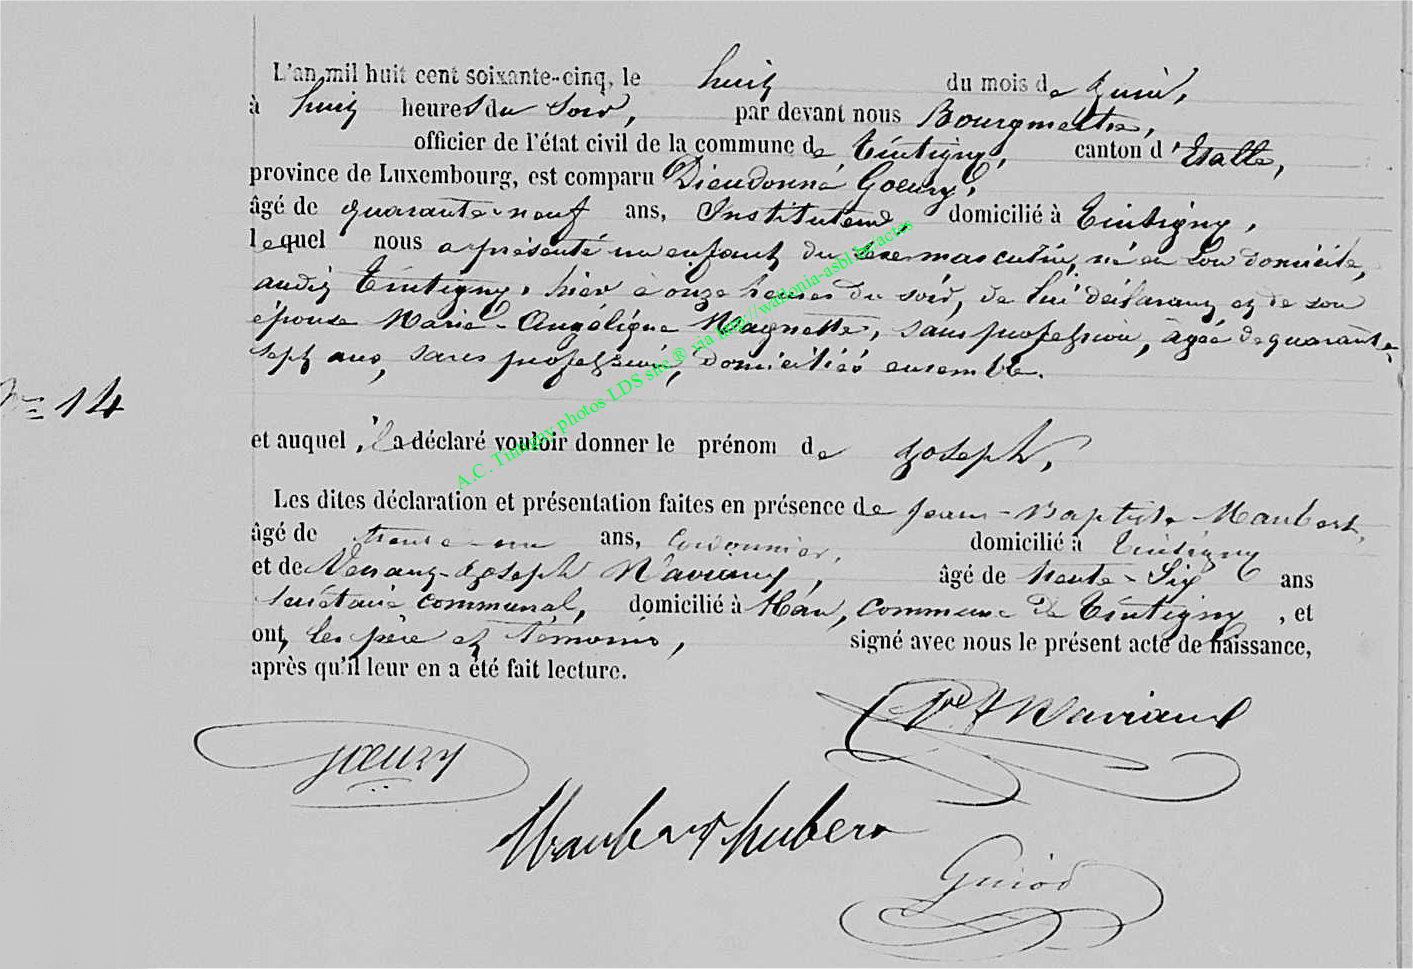 L'an mil huit cent soixante-cinq, le huit du mois de Juin,
à huit heures du soir, par devant nous Bourgmestre,
officier de l'état civil de la commune de Tintigny, canton d'Etalle,
province de Luxembourg, est comparu Dieudonné Goeury,
âgé de quarante-neuf ans, Instituteur, domicilié à Tintigny,
lequel nous a présenté un enfant du sexe masculin, né en son domicile,
audit Tintigny, hier à onze heures du soir, de lui déclarant et de son
épouse Marie-Angélique Magnette, sans profession, âgée de quarante
sept ans, sans profession, domiciliés ensemble.
N° 14
et auquel il a déclaré vouloir donner le prénom de Joseph,
Les dites déclaration et présentation faites en présence de Jean-Baptiste Maubert,
âgé de trente-un ans, Cordonnier, domicilié à Tintigny
et de Joseph âgé de trente-Six ans
Secrétaire communal, domicilié à Han, commune de Tintigny, et
ont, les père et témoins, signé avec nous le présent acte de naissance,
après qu'il leur en a été fait lecture.
A.C. Tintigny photos LDS snc ® via http://wallonia-asbl.be/actes
Goeury
Maubert huber